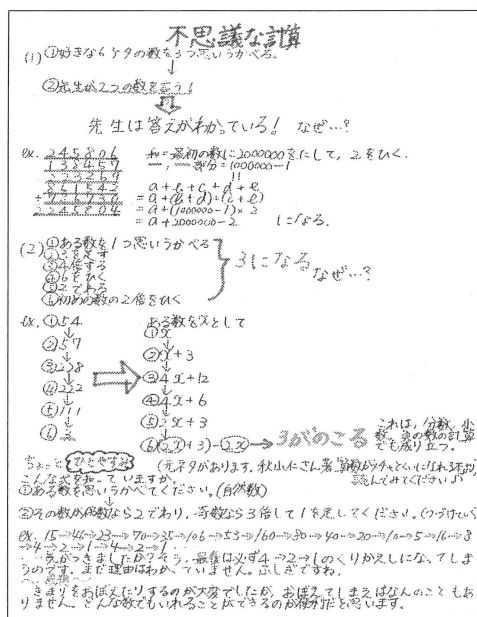 不思議な計算
(1) ①好きな6ケタの数を3つ思いうかべる。
↓
②先生が2つの数を言う!
先生は答えがわかっている! なぜ…?
ex. 245806
和=最初の数に2000000をにして, 2をひく。
部分=1000000-1
a+b+c+d+e
861542
= a+(b+d)+(c+e)
= a+(1000000-1)×2
2248804
= a+2000000-2 になる。
(2) ①ある数を1つ思いうかべる
②3を足す
③4倍する
④6をひく
⑤2でわる
⑥初めの数の2倍をひく
3になる
なぜ…?
ex. ①54
②57
③228
④222
⑤111
⑥3
ある数をxとして
①x
②x+3
③4x+12
④4x+6
⑤2x+3
⑥(2x+3)-2x → 3がのこる
これは, 分数, 小数, 負の数の計算でも成り立つ。
ちょっと ひとやすみ
(元ネタがあります。秋山仁さん著
読んでみてください♪)
こんな式を知っていますか。
①ある数を思いうかべてください。(自然数)
↓
②その数が偶数なら2でわり, 奇数なら3倍して1を足してください。(つづけていく)
ex. 15→46→23→70→35→106→53→160→80→40→20→10→5→16→8
→4→2→1→4→2→1…
気がつきましたか? そう, 最後は必ず4→2→1のくりかえしになってしまうのです。まだ理由はわかっていません。ふしぎですね。
きまりをおぼえたりするのが大変でしたが, おぼえてしまえばなんのこともありません。どんな数でもいれることができるのが
だと思います。